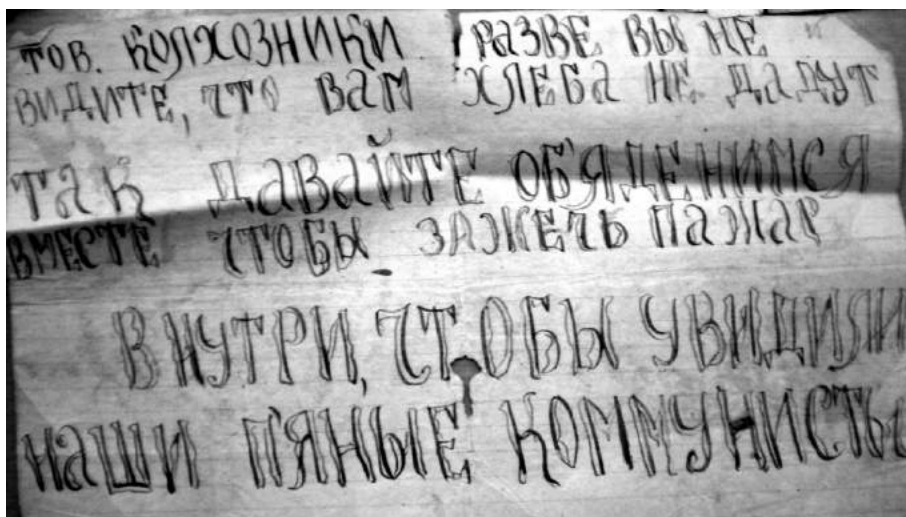 тов. КОЛХОЗНИКИ РАЗВЕ ВЫ НЕ
ВИДИТЕ, ЧТО ВАМ ХЛЕБА НЕ ДАДУТ
ТАК ДАВАЙТЕ ОБ'ЯДЕНИМСЯ
ВМЕСТЕ ЧТОБЫ ЗАЖЕЧЬ ПАЖАР
ВНУТРИ, ЧТОБЫ УВИДИЛИ
НАШИ П'ЯНЫЕ КОММУНИСТЫ